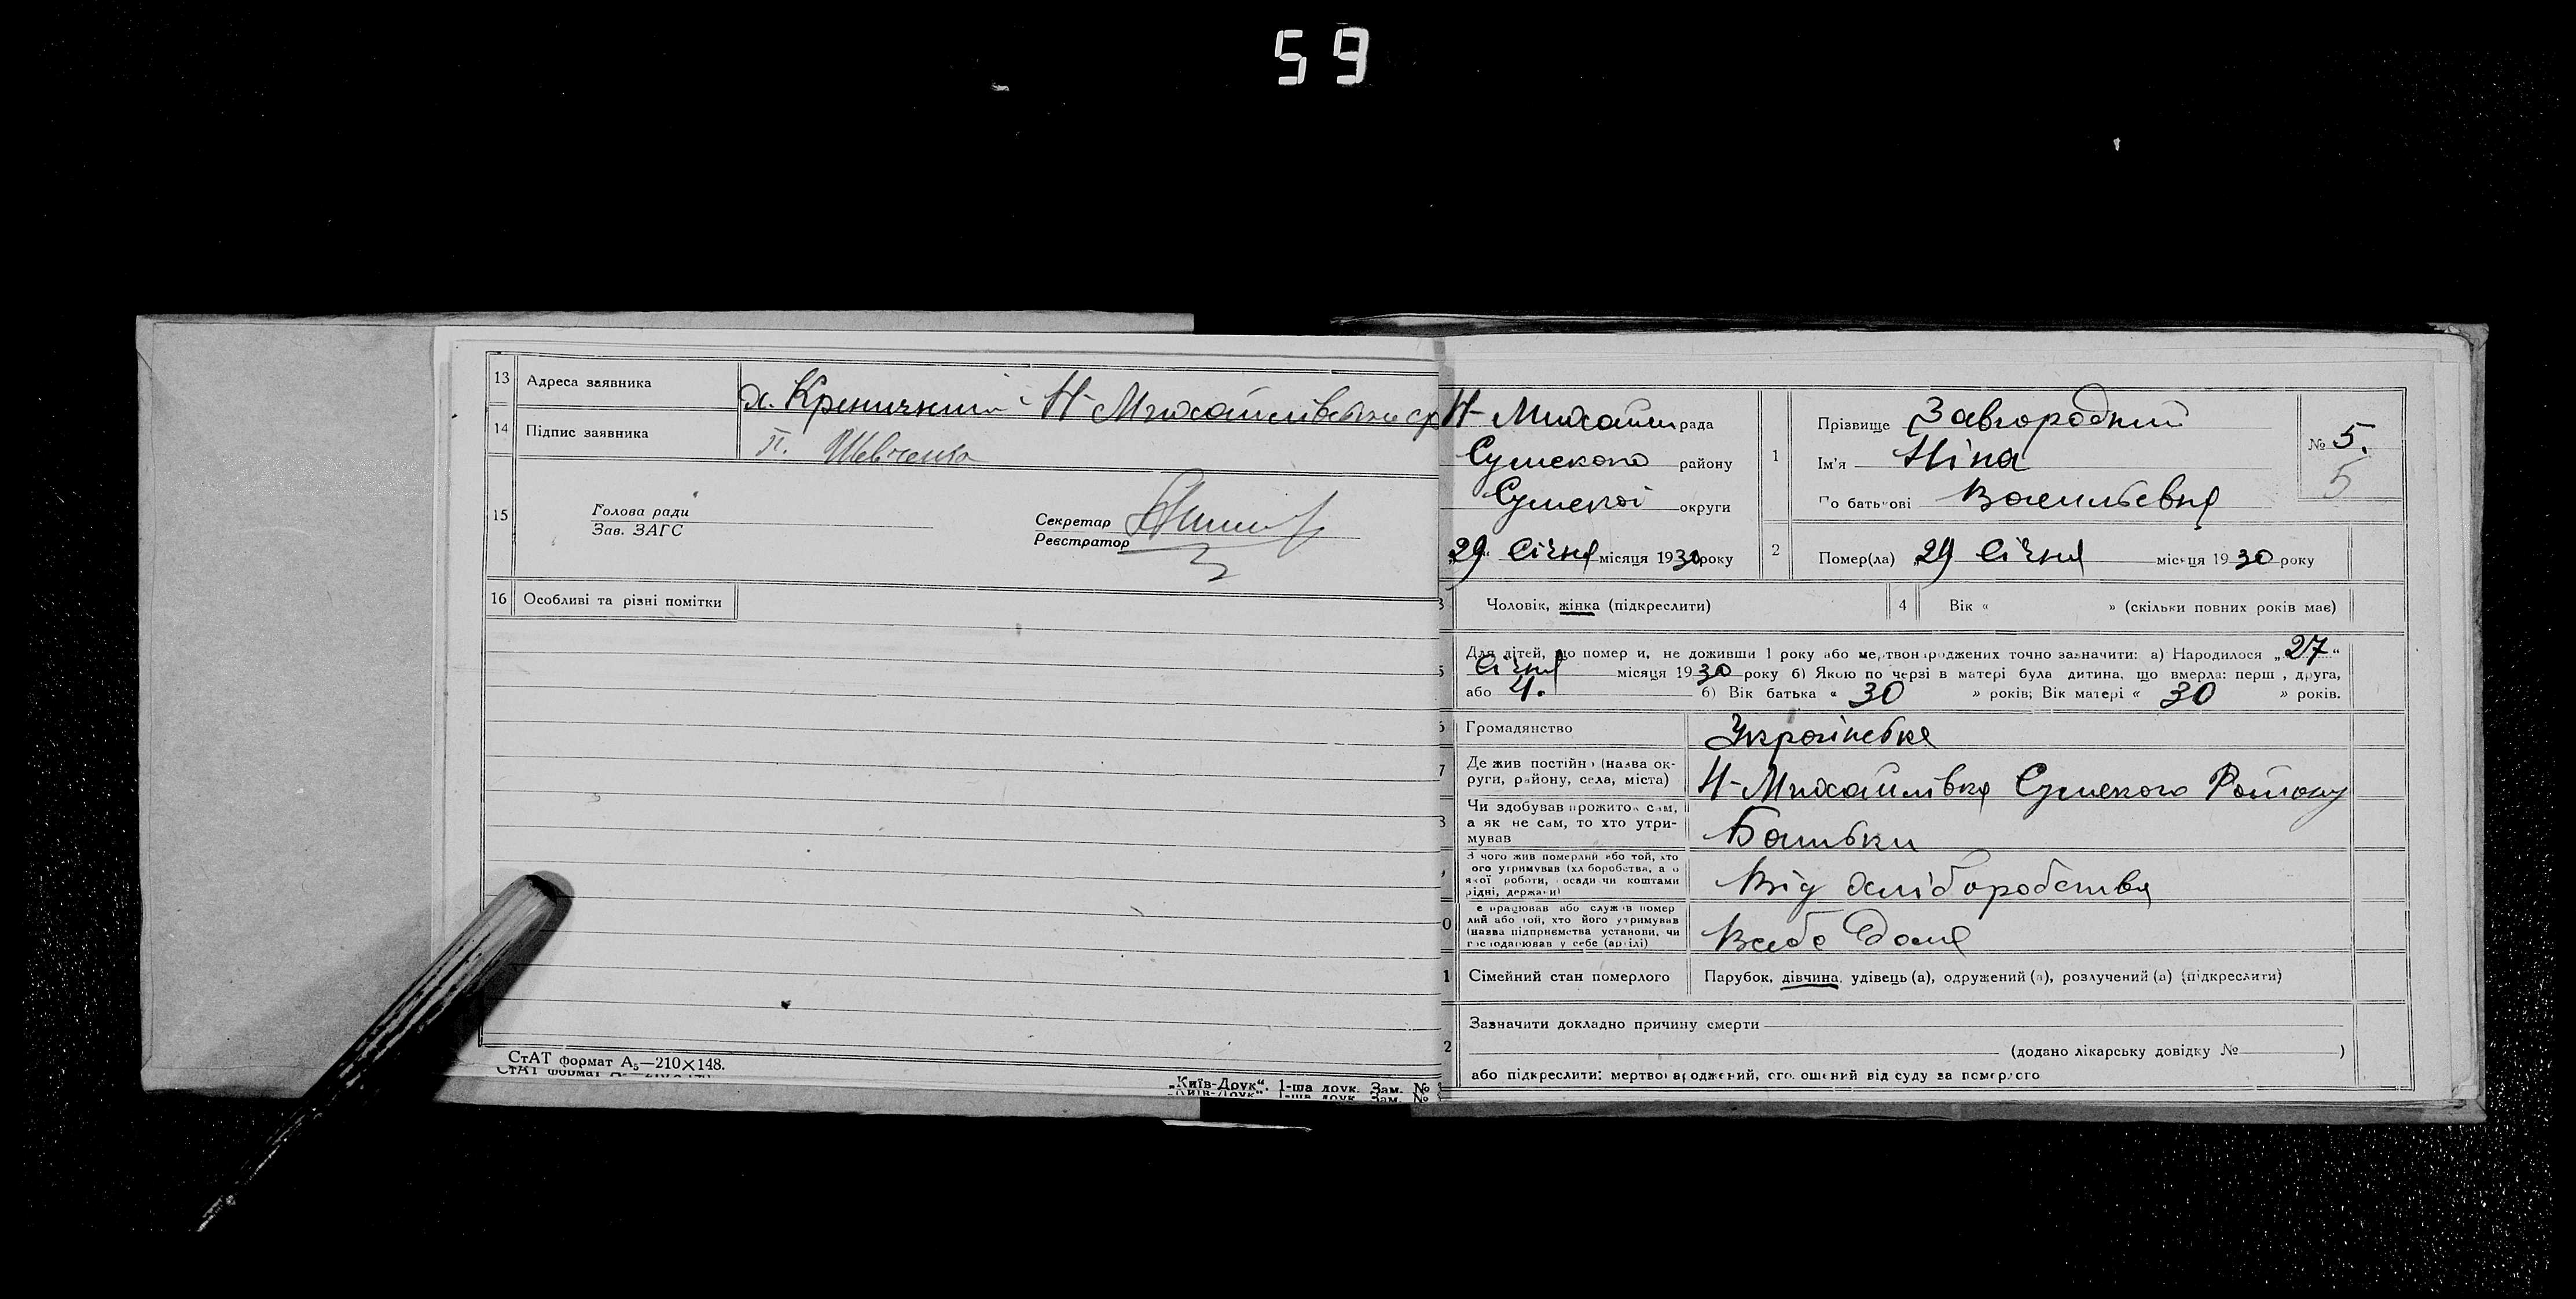 59
13 Адреса заявника х. Креничний Н-Михайлівської ср
14 Підпис заявника П. Шевченко
15 Голова ради
Зав. ЗАГС
Секретар
Реєстратор
16 Особливі та різні помітки
СтАТ формат А₅—210×148.
„Київ-Друк“. 1-ша друк. Зам. №
Н-Михайлі рада
Сумского району
Сумскої округи
29 Січня місяця 1930 року
1 Прізвище Завгородний
Ім'я Ніна
По батькові Васильевна
№ 5.
5
2 Помер(ла) 29 Січня місяця 1930 року
3 Чоловік, жінка (підкреслити)
4 Вік « » (скільки повних років має)
Для дітей, що померли, не доживши 1 року або мертвонароджених точно зазначити: а) Народилося „27“
Січня місяця 1930 року б) Якою по черзі в матері була дитина, що вмерла: перш , друга,
або 4. б) Вік батька « 30 » років; Вік матері « 30 » років.
Громадянство Українське
7 Де жив постійно (назва ок-
руги, району, села, міста) Н-Михайлівка Сумского Району
Чи здобував прожиток сам,
а як не сам, то хто утри-
мував Батьки
З чого жив померлий або той, хто
його утримував (хліборобства, а о
якої роботи, посади чи коштами
рідні, держави) Від хліборобства
Де працював або служив помер
лий або той, хто його утримував
(назва підприємства установи, чи
господарював у себе (артілі) Всебе Дома
1 Сімейний стан померлого Парубок, дівчина, удівець (а), одружений (а), розлучений (а) (підкреслити)
2 Зазначити докладно причину смерти
(додано лікарську довідку № )
або підкреслити: мертвонароджений, оголошений від суду за померлого